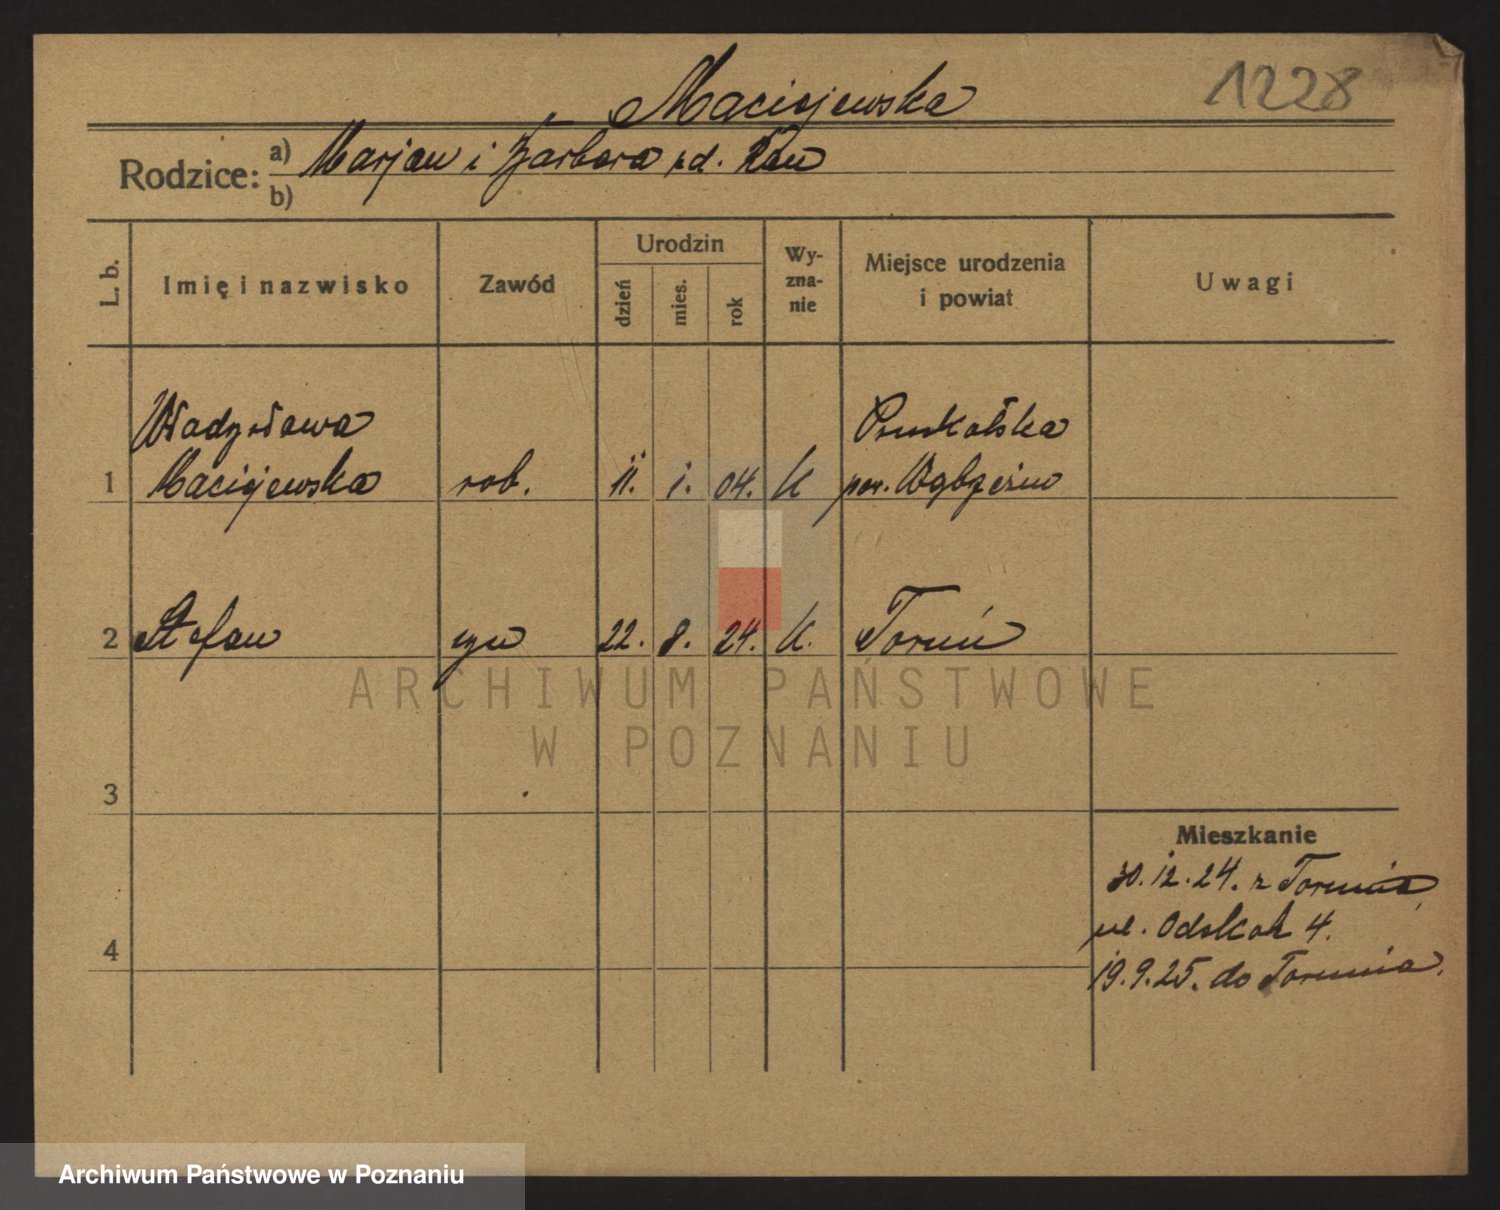 Maciejewska
1228
Rodzice:
a) Marjan i Barbara zd. Rau
b)
L. b.
Imię i nazwisko
Zawód
Urodzin
dzień
mies.
rok
Wy-
zna-
nie
Miejsce urodzenia
i powiat
Uwagi
Władysława
1 Maciejewska rob. 11. 1. 04. K pow. Wąbrzeźno
2 Stefan syn 22. 8. 24. K. Toruń
3
4
Mieszkanie
30.12.24. z Torunia,
ul. Odskok 4.
19.9.25. do Torunia.
ARCHIWUM PAŃSTWOWE
W POZNANIU
Archiwum Państwowe w Poznaniu